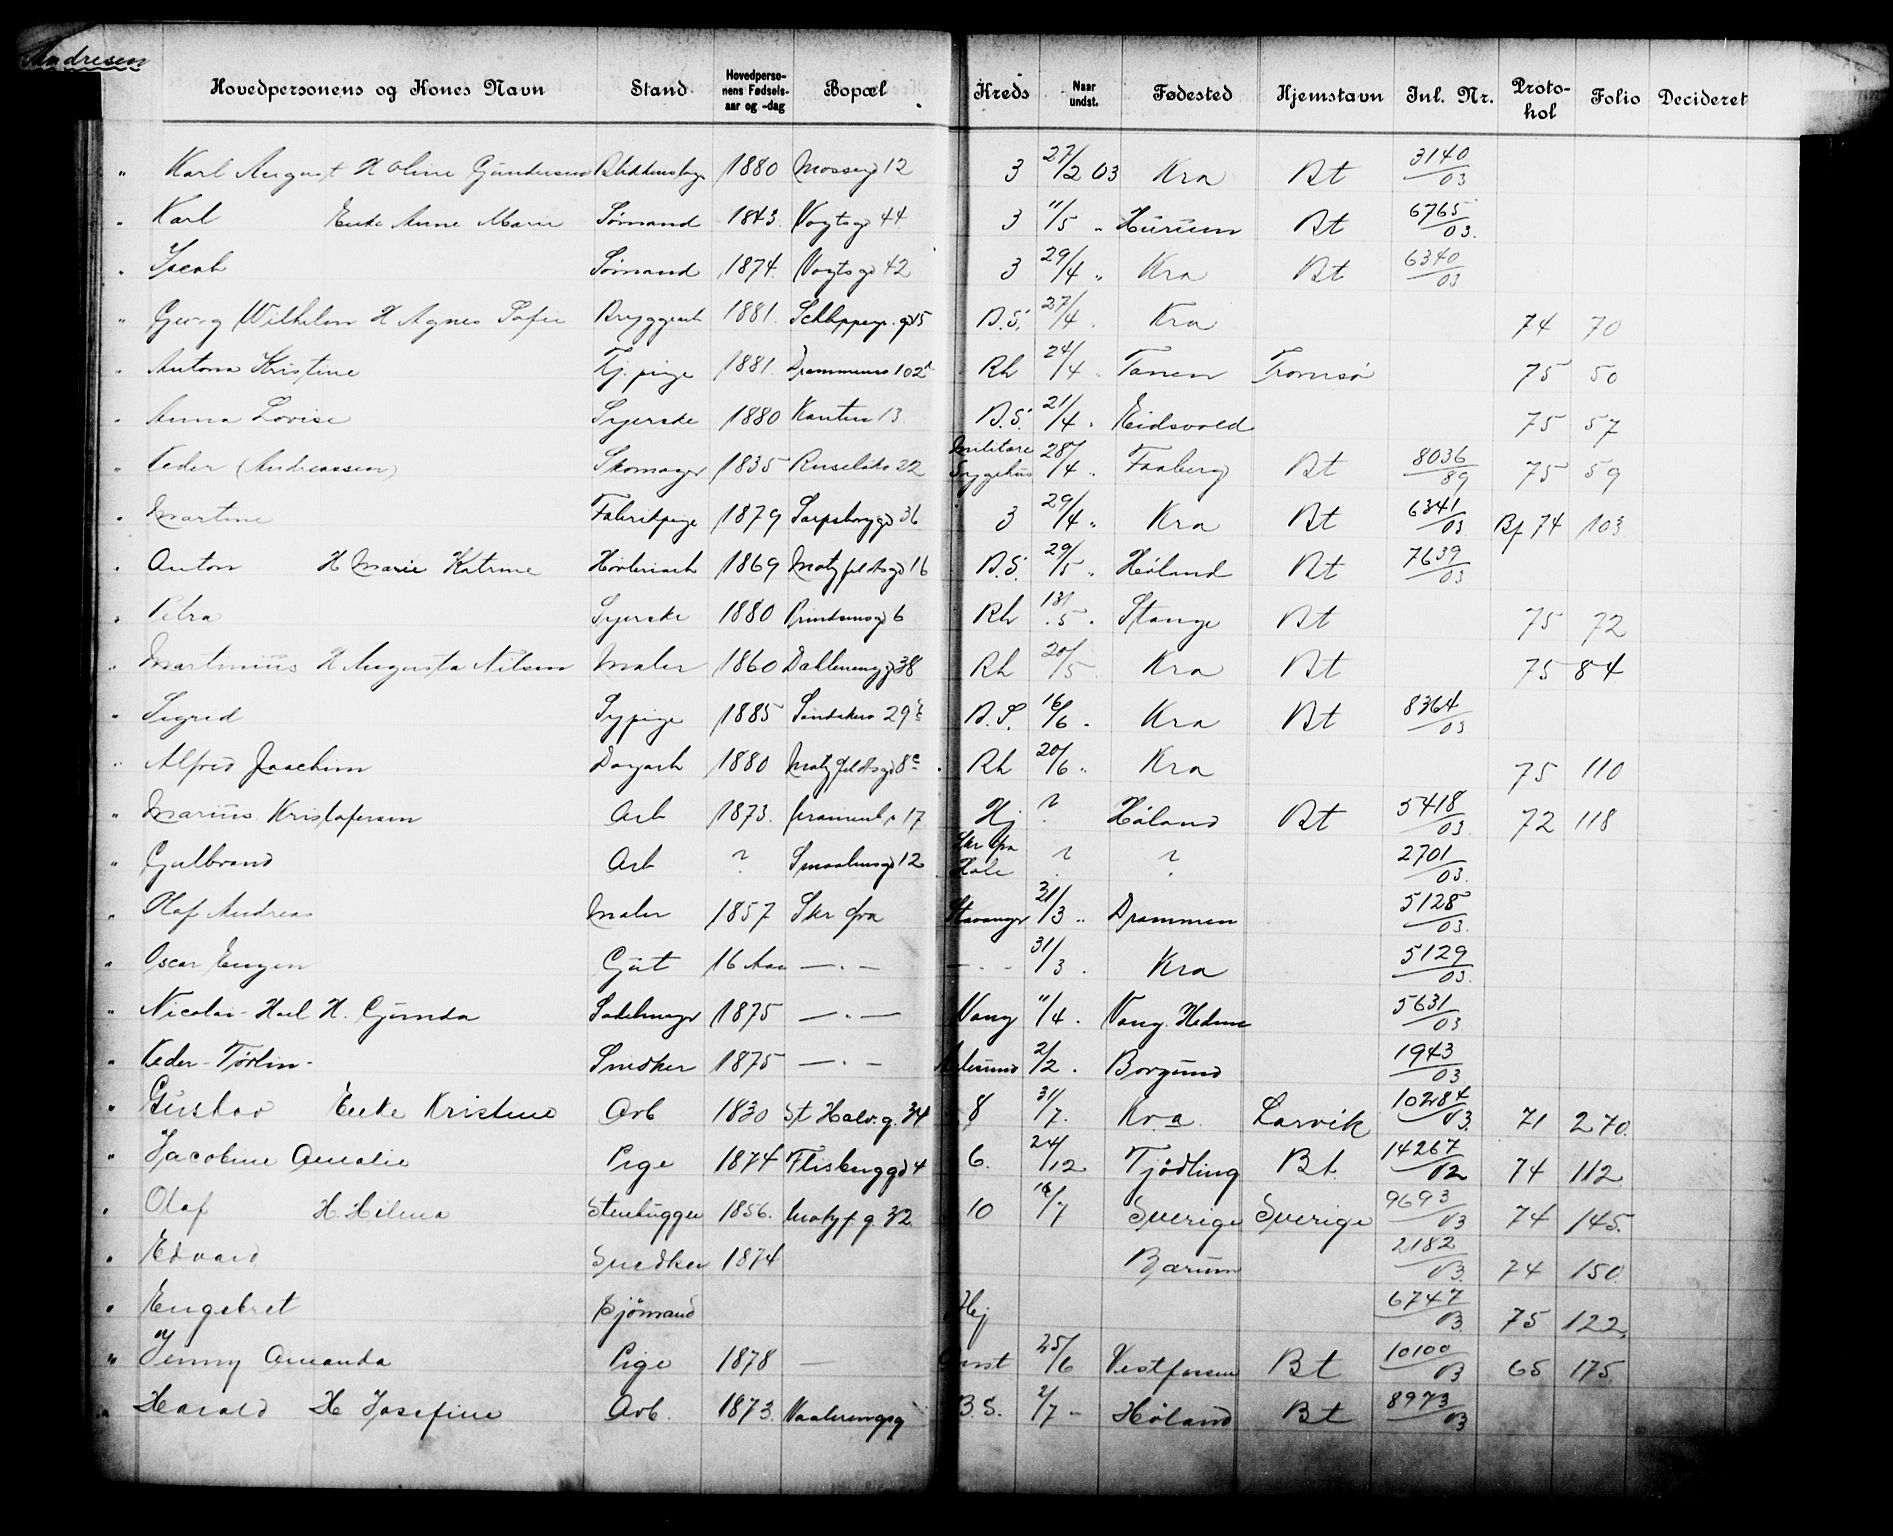 Andresen
Hovedpersonens og Kones Navn Stand Hovedpersonens Fødselsaar og -dag Bopæl Kreds Naar undst. Fødested Hjemstavn Inl. Nr. Protohol Folio Decideret
" Karl August H Oline Gundersen 1880 Mossegd 12 3 27/2 03 Kra Bt 3140/03
" Karl Enke Anne Marie Sømand 1843. Vogtsgd 44 3 11/5 " Hurum Bt 6765/03.
" Jacob Sømand 1874. Vogtsgd 42 3 29/4 " Kra Bt 6340/03
" Georg Wilhelm H Agnes Sofie Bryggearb 1881. Schleppegr. gd 15 B.S. 27/4 " Kra 74 70
" Antona Kristine Tj. pige 1881. Drammensv 102 Rh 24/4 " Tanen Tromsø 75 50
" Anna Lovise Syerske 1880 13 B.S. 21/4 " Eidsvold 75 57
" Peder (Andreassen) Skomager 1835 Ruseløkv 22 Militære Sygehus 28/4 " Faaberg Bt 8036/89 75 59
" Martine Fabrikpige 1879 Sarpsborggd 36 3 29/4 " Kra Bt 6341/03 Bf 74 103
" Anton H Marie Katrine Høvleriarb 1869 Motzfeldtsgd 16 B.S. 29/5 " Høland Bt 7639/03
" Petra Syerske 1880 Prindsensgd 6 Rh 13/5 " Stange Bt 75 72
" Martinius H Augusta Nilsen Maler 1860 Dahlenenggd 38 Rh 20/5 Kra Bt 75 84
" Sigrid Sypige 1885 29 B.S. 16/6 " Kra Bt 8364/03
" Alfred Joachim Dagarb 1880 Motzfeldtsgd 8c Rh 20/6 " Kra 75 110
" Marius Kristofersen Arb 1873. 17 Hj ? Høland Bt 5418/03. 72 118
" Gulbrand Arb ? Smaalensgd 12 Skr fra Hole ? ? 2701/03.
" Olaf Andreas Maler 1857 Skr fra Stavanger 31/3 " Drammen 5128/03.
" Oscar Eugen Gut 16 Aar — " — — " — 31/3 " Kra 5129/03.
" Nicolai - Karl H. Gunda Sadelmager 1875 — " — Vang 11/4 " Vang. Hedm 5631/03
" Peder - Torlin - Snedker 1875 — " — Aalesund 2/2 " Borgund 1943/03
" Gustav Enke Kristine Arb 1830 St Halv. g. 34 8 31/7. Kra. Larvik 10284/03. 71 270.
" Jacobine Amalie Pige 1874 Flisbyggd 4 6. 24/12 Tjødling Bt. 14267/02 74 112
" Olaf H. Hilma Stenhugger 1856. Motzf. g. 32 10 16/7 Sverige Sverige 9693/03 74 145.
" Edvard Snedker 1874 Bærum 2182/03. 74 150.
" Engebret Sjømand Hj 6747/03. 75 122.
" Jenny Amanda Pige 1878 — 25/6 Vestfossen Bt 10100/03 65 175
" Harald H Josefine Arb. 1873. Vaalerengsg B.S. 2/7 " Høland Bt 8973/03